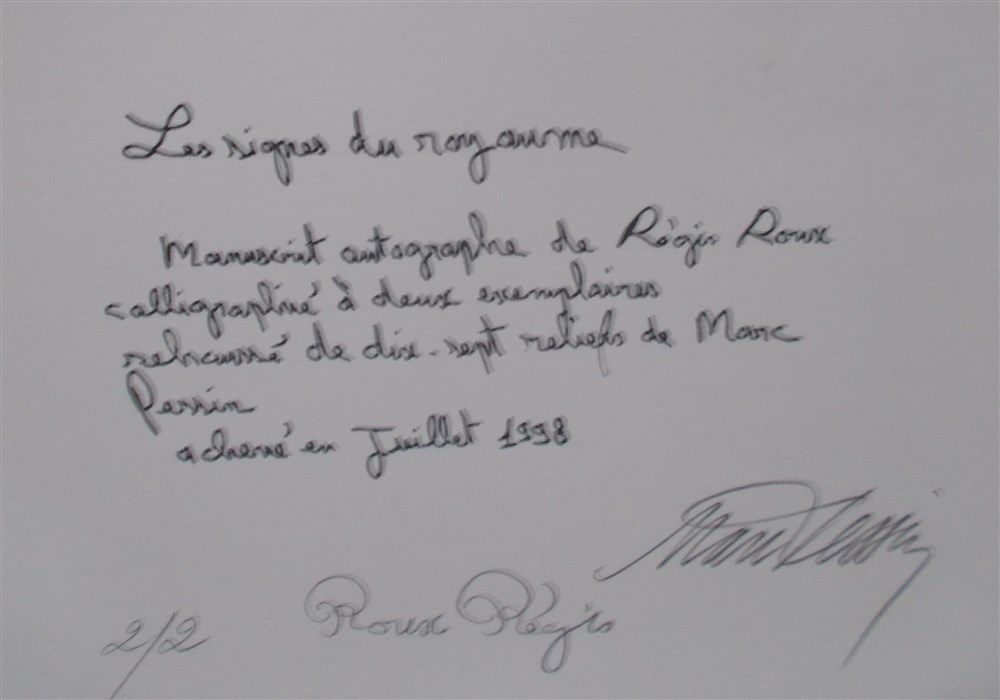 Les signes du royaume
Manuscrit autographe de Régis Roux
calligraphié à deux exemplaires
rehaussé de dix-sept reliefs de Marc
Pessin
achevé en Juillet 1998
Marc Pessin
Roux Régis
2/2